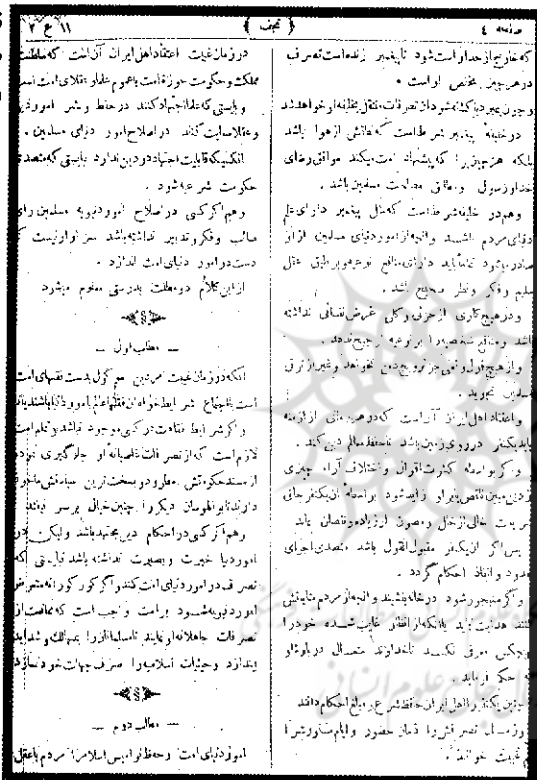 صفحه ٤
﴿ نجف ﴾
١١ ع ٢
که خارج از جانب خدا است شود تا پیغمبر زنده است تصرف
در هر چیز مختص او است *
و چون پیغمبر دنیا گذشته شود از تصرفات منتقل بخلیفهٔ او خواهد شد
در خلیفهٔ پیغمبر شرط است که خالی از هوا باشد
بلکه هر چیزیرا که پیشنهاد امت میکند موافق رضای
خدا و رسول و مطابق مصلحت مسلمین باشد .
و هم در خلیفه شرط است که مثل پیغمبر دارای علم
دنیای مردم باشد و آنچه از امور دنیای مسلمین از او
صادر میشود تماماً باید دارای منافع نوعیه و بر طبق عقل
سلیم و فکر و نظر صحیح باشد .
و در هیچ کاری از جزئی و کلی غرض نفسانی نداشته
باشد و منافع شخصیه را بر نوعیه ترجیح ندهد
و از هیچ قول و فعلی جز ترویج دین نخواهد و غیر از ترقی
مسلمین نجوید .
و اعتقاد اهل ایران آن است که در هر زمانی از ازمنه
باید یکنفر در روی زمین باشد تا حفظ دین کند .
و اگر بواسطه کثرت اقوال و اختلاف آراء چیزی
از دین مبین ناقص یا بر او زاید شود بواسطه آن یکنفر جای
شریعت خالی از خلل و مصون از زیاده و نقصان باید
پس اگر آن یکنفر مقبول القول باشد متصدی اجرای
حدود و انفاذ احکام گردد .
و اگر مهجور شود در خانه بنشیند و آنچه از مردم
کنند هدایت نماید یا آنکه از انظار غایب شده خود را
بهیچکس معرفی نکند تا خداوند متعال در بارهٔ او
چه حکم فرماید .
چنین یکنفر را اهل ایران حافظ شرع و مبلغ احکام دانند
و زمان تصرفش را زمان حضور و ایام مستوریش را
غیبت خوانند .
در زمان غیبت اعتقاد اهل ایران آن است که سلطنت
مملکت و حکومت حوزهٔ امت با عموم علماء و عقلای امت است
و بایستی که علما اجتهاد کنند در حفظ و نشر امور دین
و عقلا سیاست کنند در اصلاح امور دنیای مسلمین .
آنکسیکه قابلیت اجتهاد در دین ندارد بایستی که متصدی
حکومت شرعیه شود .
و هم اگر کسی در اصلاح امور دنیویه مسلمین رأی
صائب و فکر و تدبیر نداشته باشد سزاوار نیست که
دست در امور دنیای امت اندازد .
از این کلام دو مطلب بدرستی معلوم میشود
— مطلب اول —
آنکه در زمان غیبت امر دین موکول بدست فقهای امت
است باجماع شرایط خواه آن فقها عالم بامور دنیا باشند یا نه
و اگر شرایط فقاهت در کسی موجود نباشد بر تمام امت
لازم است که از تصرفات غاصبانهٔ او جلوگیری نموده
از مسند حکومتش مطرود و بسخت‌ترین سیاستش مأخوذ
دارند تا بوالهوسان دیگر را چنین خیال بر سر نیفتد
و هم اگر کسی در احکام دین مجتهد باشد و لیکن در
امور دنیا خبرت و بصیرت نداشته باشد نبایستی که
تصرف در امور دنیای امت کند و اگر کورکورانه متعرض
امور دنیویه شود بر امت واجب است که ممانعت از
تصرفات جاهلانهٔ او نمایند تا مسلمانان را بمهالک و شداید
نیندازد و حیثیات اسلامیه را صرف جهات خود نسازد
— مطلب دوم —
امور دنیای امت و حفظ نوامیس اسلام را مردم با عقل